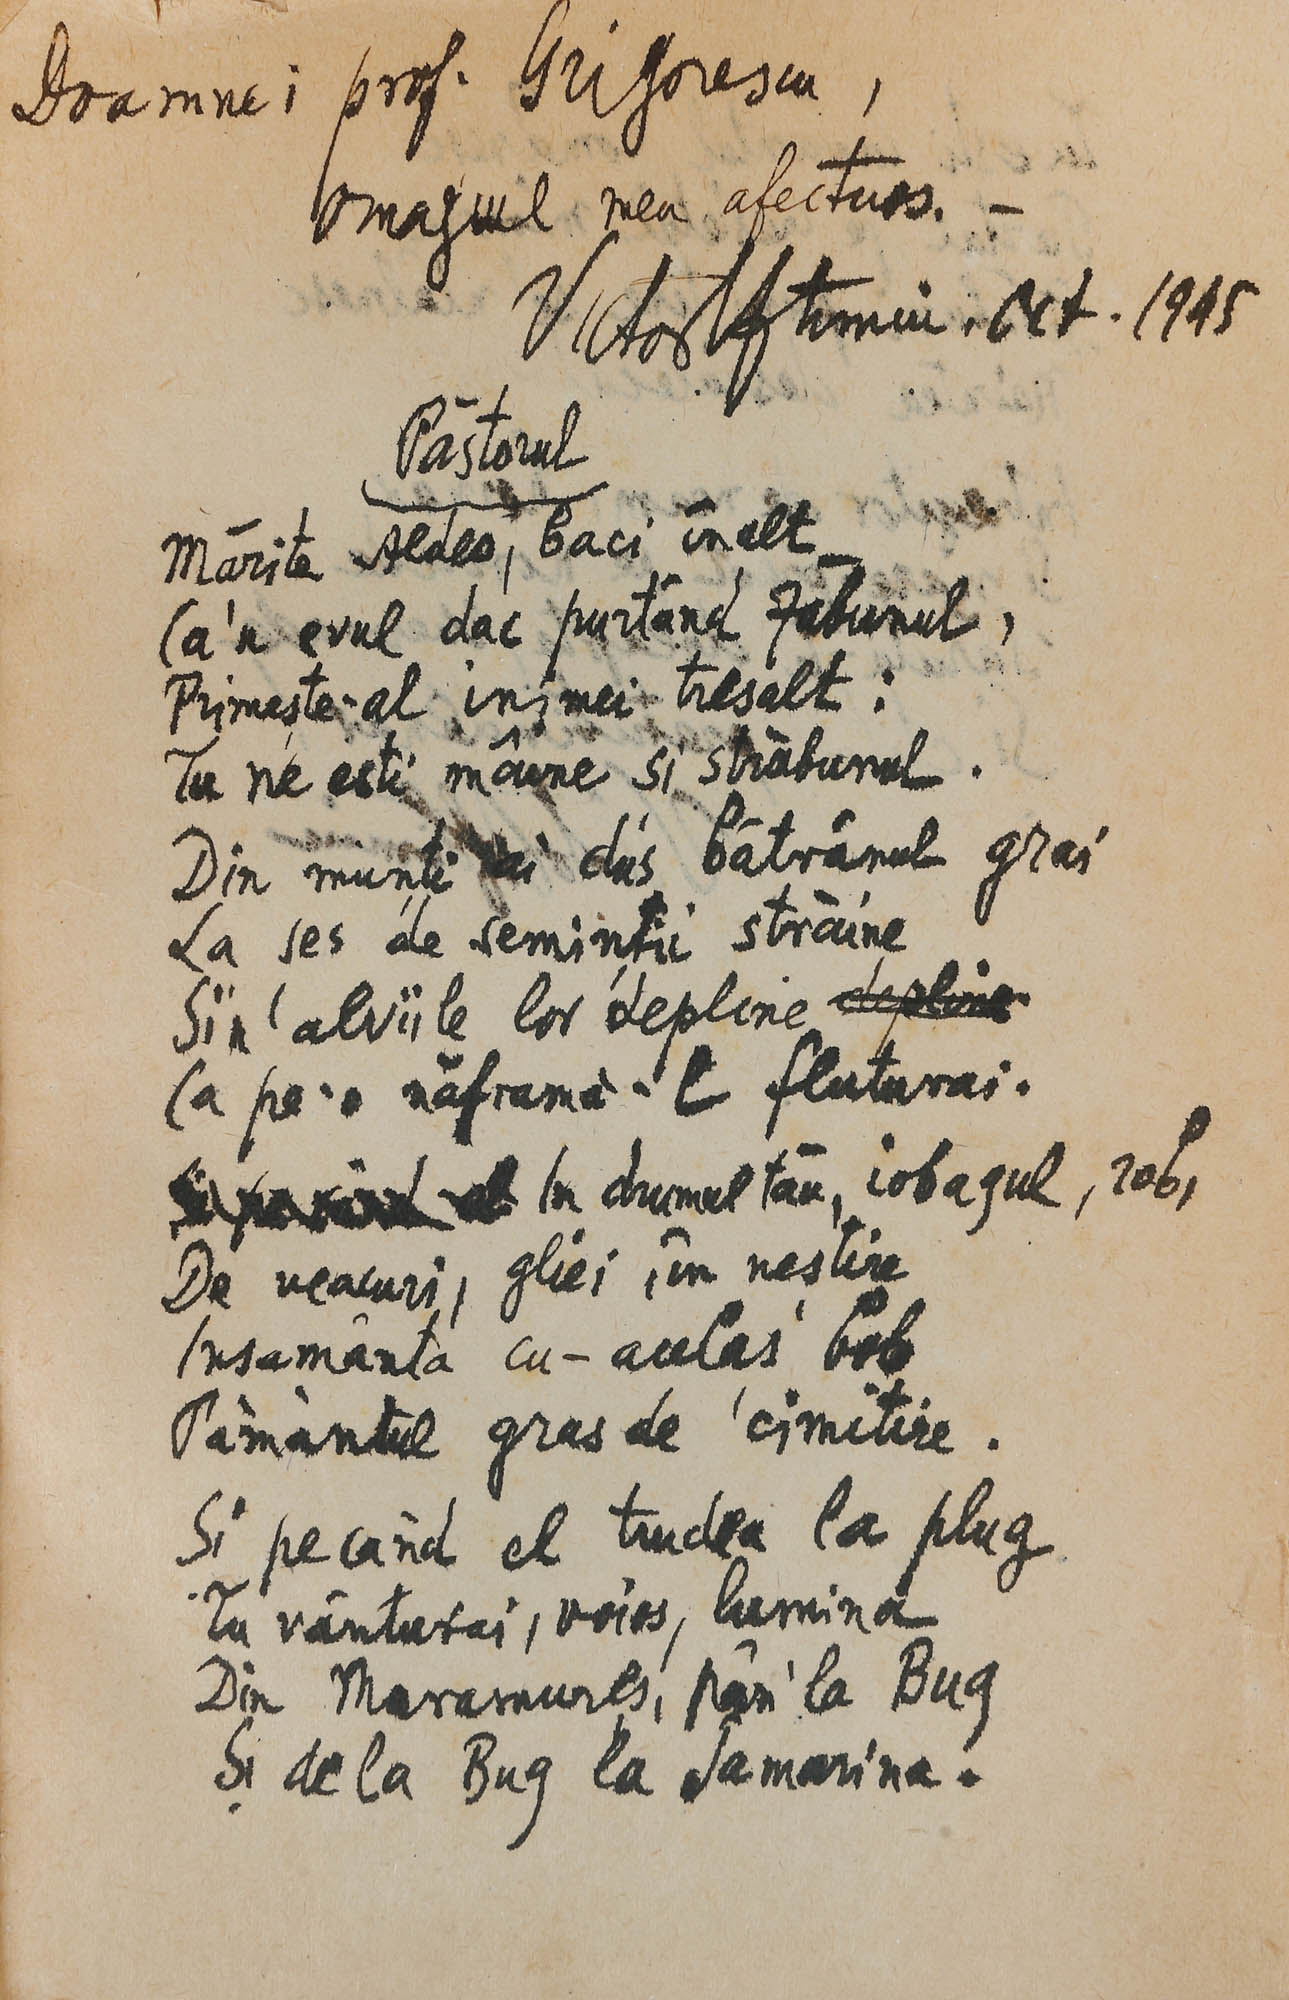 Doamnei prof. Grigorescu,
omagiul meu afectuos. –
Victor Eftimiu. Oct. 1945
Păstorul
Mărite Aedeo, baci înalt
Ca'n evul dac purtând zăbunul,
Primește-al inimei tresalt:
Tu ne ești mâine si străbunul.
Din munți ai dus bătrânul grai
La șes de seminții străine
Si'n alviile lor depline
Ca pe-o năframă-l fluturai.
In drumul tău, iobagul, rob,
De veacuri, gliei, în neștire
Insămânța cu-acelaș bob
Pământul gras de cimitire.
Si pecând el trudea la plug
Tu vânturai, voios, lumina
Din Maramureș, pân'la Bug
Și dela Bug la Samarina.